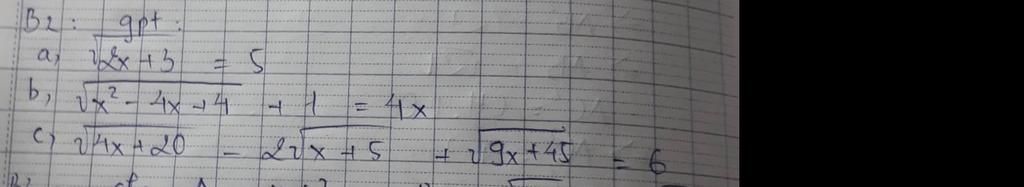 B2: gpt:
a, √2x+3 = 5
b, √x² - 4x + 4 + 1 = 4x
c, √4x+20 - 2√x+5 + √9x+45 = 6